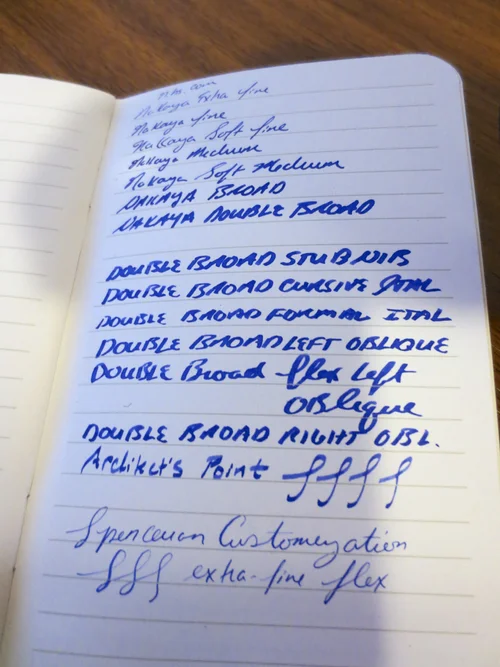 nibs.com
Nakaya Extra fine
Nakaya fine
Nakaya Soft fine
Nakaya Medium
Nakaya Soft Medium
NAKAYA BROAD
NAKAYA DOUBLE BROAD
DOUBLE BROAD STUB NIB
DOUBLE BROAD CURSIVE ITAL
DOUBLE BROAD FORMAL ITAL
DOUBLE BROAD LEFT OBLIQUE
DOUBLE Broad flex left
OBlique
DOUBLE BROAD RIGHT OBL.
Architect's Point
Spencerian Customization
extra-fine flex